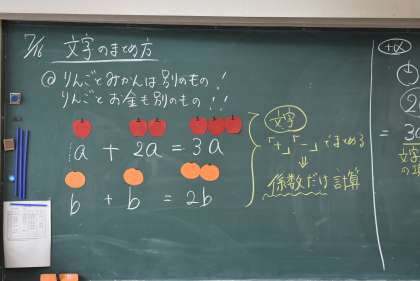 7/16 文字のまとめ方
◎りんごとみかんは別のもの!
りんごとお金も別のもの!!
1a + 2a = 3a
b + b = 2b
文字
「+」「-」でまとめる
⇓
係数だけ計算
+α
①
②
= 3a
文字
の項